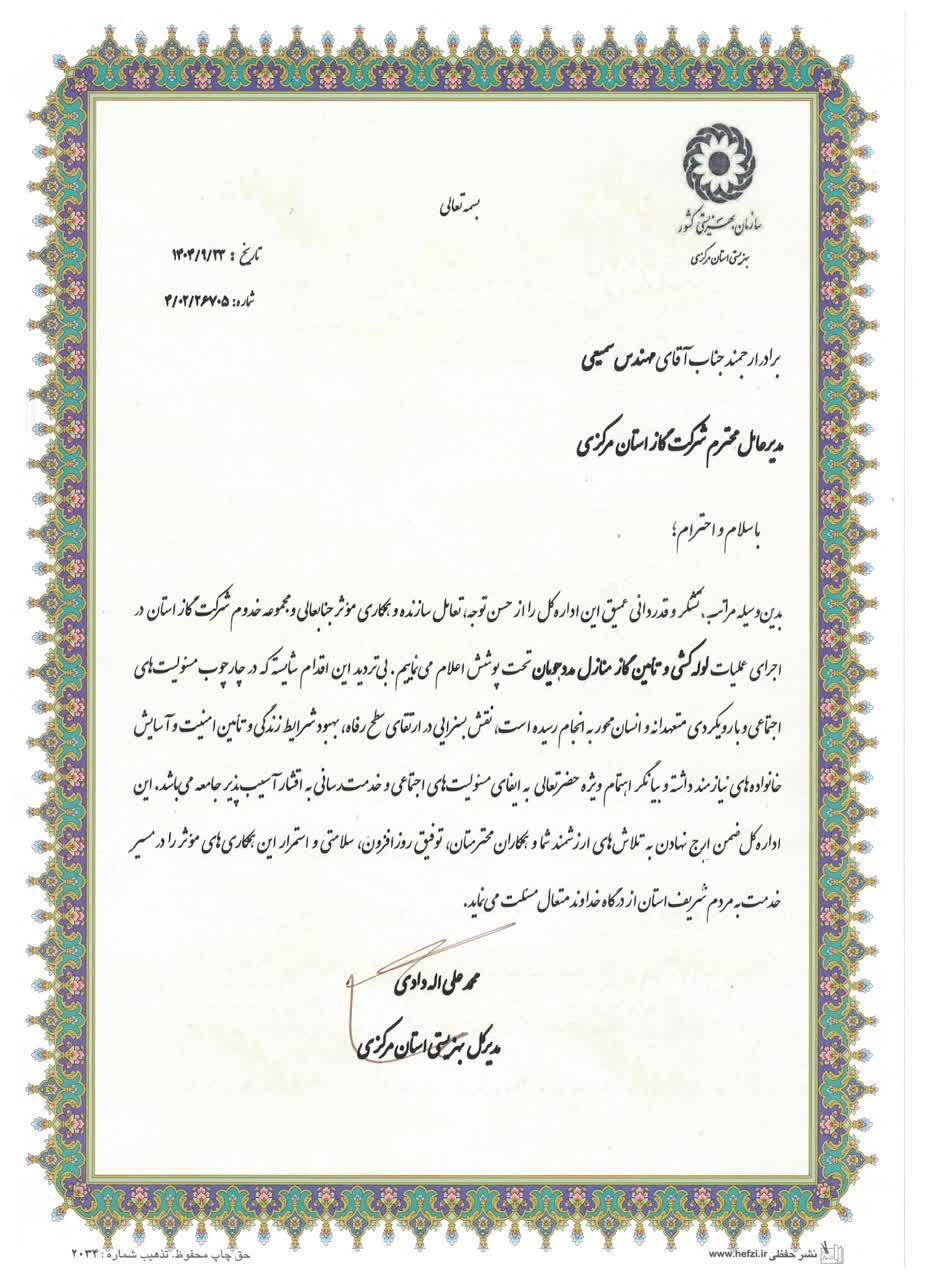 سازمان بهزیستی کشور
بهزیستی استان مرکزی
بسمه تعالی
تاریخ : ۱۴۰۴/۹/۲۳
شماره: ۴/۰۲/۲۶۷۰۵
برادر ارجمند جناب آقای مهندس سمیعی
مدیرعامل محترم شرکت گاز استان مرکزی
با سلام و احترام؛
بدین وسیله مراتب تشکر و قدردانی عمیق این اداره کل را از حسن توجه، تعامل سازنده و همکاری مؤثر جنابعالی و مجموعه خدوم شرکت گاز استان در
اجرای عملیات لوله کشی و تامین گاز منازل مددجویان تحت پوشش اعلام می‌نماییم. بی‌تردید این اقدام شایسته که در چارچوب مسئولیت‌های
اجتماعی و با رویکردی متعهدانه و انسان محور به انجام رسیده است، نقش بسزایی در ارتقای سطح رفاه، بهبود شرایط زندگی و تأمین امنیت و آسایش
خانواده‌های نیازمند داشته و بیانگر اهتمام ویژه حضرتعالی به ایفای مسئولیت‌های اجتماعی و خدمت رسانی به اقشار آسیب پذیر جامعه می‌باشد. این
اداره کل ضمن ارج نهادن به تلاش‌های ارزشمند شما و همکاران محترمتان، توفیق روزافزون، سلامتی و استمرار این همکاری‌های مؤثر را در مسیر
خدمت به مردم شریف استان از درگاه خداوند متعال مسئلت می‌نماید.
محمد علی اله دادی
مدیرکل بهزیستی استان مرکزی
نشر حفظی www.hefzi.ir
حق چاپ محفوظ. تذهیب شماره : ۲۰۳۴